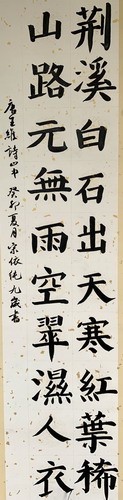 荆溪白石出天寒紅葉稀
山路元無雨空翠濕人衣
唐王維詩山中 癸卯夏月 宗依純九歲書